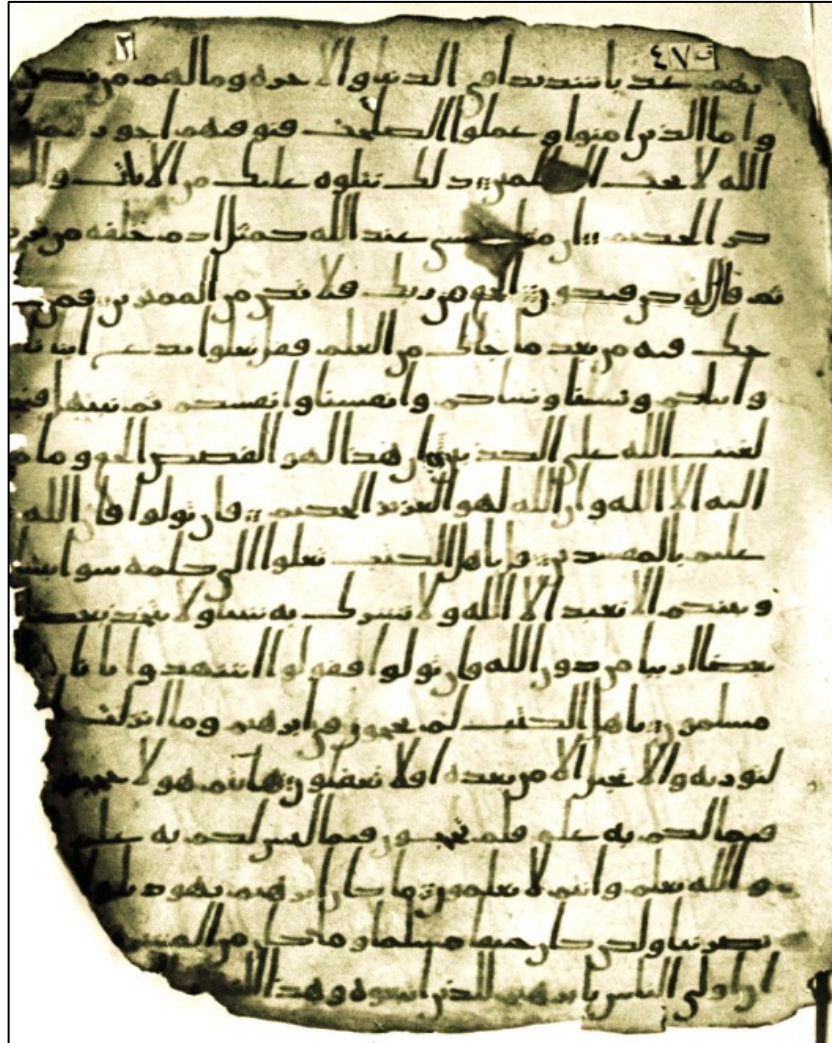 ق ٤٧ ٢
بهم عذبا شديدا في الدنيا والاخره وما لهم من نصر
واما الذين امنوا وعملوا الصلحت فنوفيهم اجورهم
الله لا يحب الظلمين ذلك نتلوه عليك من الايت وال
كر الحكيم ان مثل عيسى عند الله كمثل ادم خلقه من تر
ثم قال له كن فيكون الحق من ربك فلا تكن من الممترين فمن
جك فيه من بعد ما جاك من العلم فقل تعلوا ندع ابنا
وابناكم ونسانا ونساكم وانفسنا وانفسكم ثم نبتهل فنج
لعنت الله على الكذبين ان هذا لهو القصص الحق وما م
اله الا الله وان الله لهو العزيز الحكيم فان تولوا فان الله
عليم بالمفسدين قل ياهل الكتب تعلوا الى كلمه سوا بيننا
وبينكم الا نعبد الا الله ولا نشرك به شيا ولا يتخذ بعضنا
بعضا اربابا من دون الله فان تولوا فقولوا اشهدوا بانا
مسلمون ياهل الكتب لم تحجون في ابرهيم وما انزلت
التوريه والانجيل الا من بعده افلا تعقلون هانتم هولا حججتم
فيما لكم به علم فلم تحجون فيما ليس لكم به علم
والله يعلم وانتم لا تعلمون ما كان ابرهيم يهوديا ولا
نصرنيا ولكن كان حنيفا مسلما وما كان من المشر
ان اولى الناس بابرهيم للذين اتبعوه وهذا